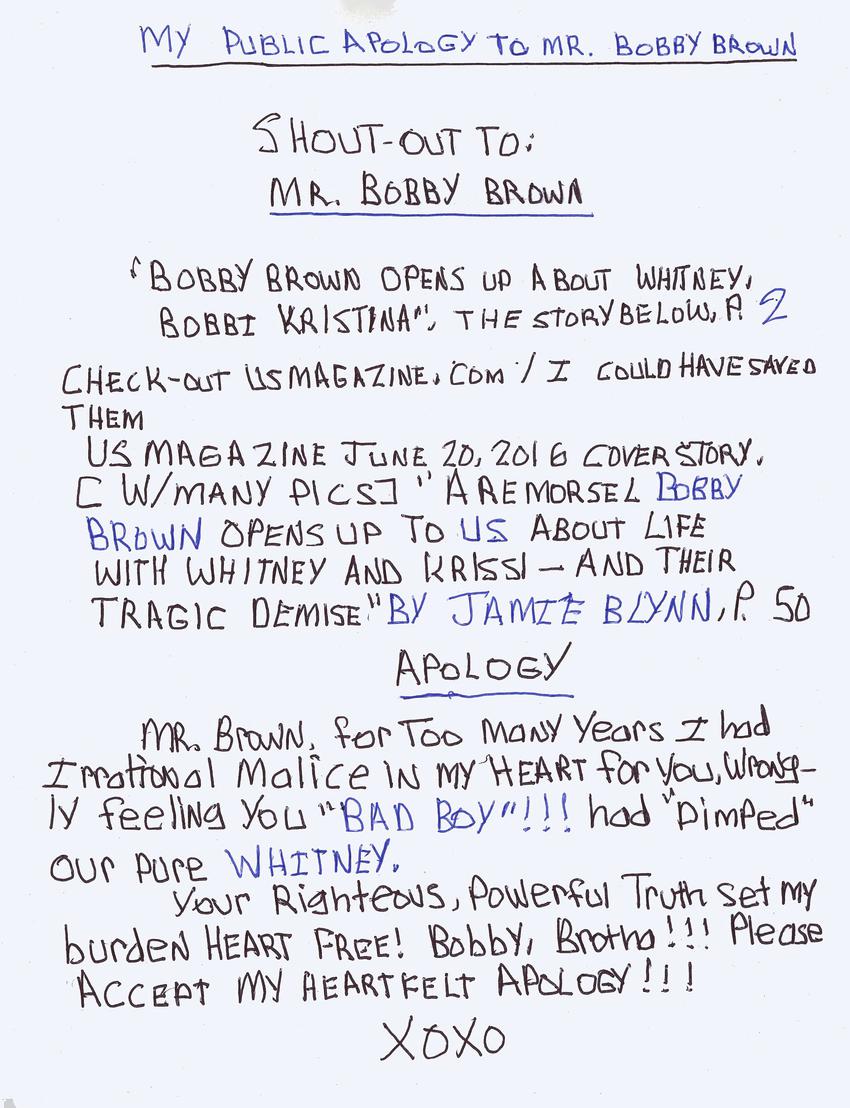 MY PUBLIC APOLOGY TO MR. BOBBY BROWN
SHOUT-OUT TO:
MR. BOBBY BROWN
"BOBBY BROWN OPENS UP ABOUT WHITNEY,
BOBBI KRISTINA", THE STORY BELOW, P. 2
CHECK-OUT USMAGAZINE.COM / I COULD HAVE SAVED
THEM
US MAGAZINE JUNE 20, 2016 COVER STORY.
[W/MANY PICS] "A REMORSEL BOBBY
BROWN OPENS UP TO US ABOUT LIFE
WITH WHITNEY AND KRISSI — AND THEIR
TRAGIC DEMISE" BY JAMIE BLYNN, P. 50
APOLOGY
MR. BROWN, for Too Many Years I had
Irrational Malice IN MY HEART for you, Wrong-
ly feeling you "BAD BOY"!!! had "Pimped"
our pure WHITNEY.
Your Righteous, Powerful Truth set my
burden HEART FREE! Bobby, Brotha!!! Please
ACCEPT MY HEARTFELT APOLOGY!!!
XOXO